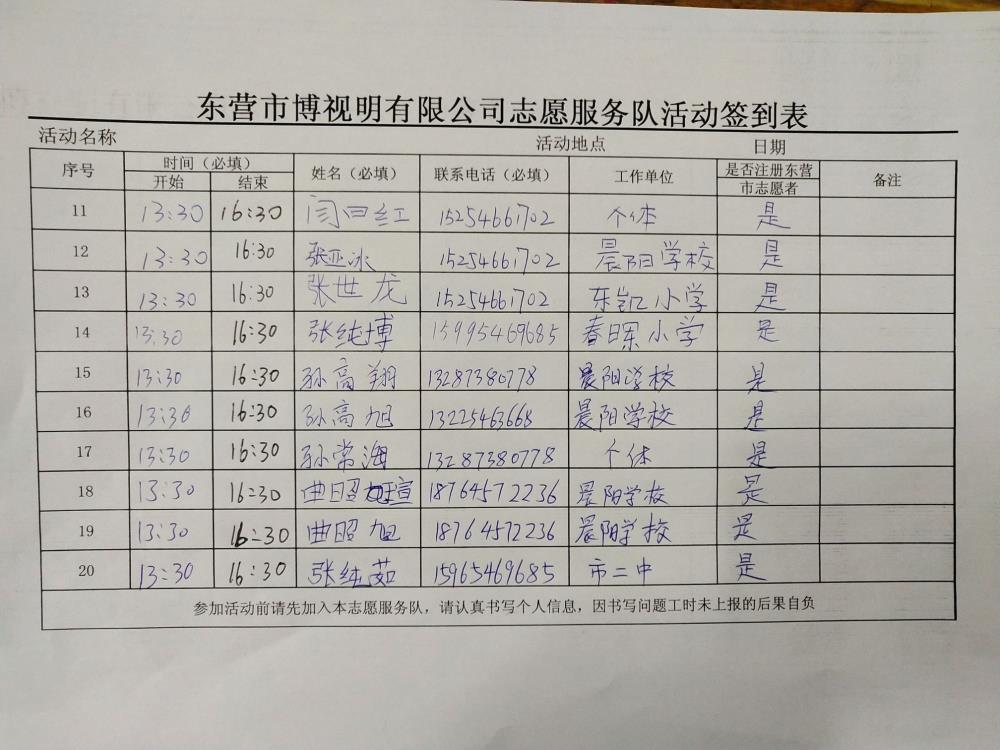 东营市博视明有限公司志愿服务队活动签到表
活动名称 活动地点 日期
序号 时间（必填） 姓名（必填） 联系电话（必填） 工作单位 是否注册东营市志愿者 备注
开始 结束
11 13:30 16:30 闫曰红 15254661702 个体 是
12 13:30 16:30 张亚冰 15254661702 晨阳学校 是
13 13:30 16:30 张世龙 15254661702 东凯小学 是
14 13:30 16:30 张纯博 15995469685 春晖小学 是
15 13:30 16:30 孙高翔 13287380778 晨阳学校 是
16 13:30 16:30 孙高旭 13225463668 晨阳学校 是
17 13:30 16:30 孙常海 13287380778 个体 是
18 13:30 16:30 曲昭瑄 18764572236 晨阳学校 是
19 13:30 16:30 曲昭旭 18764572236 晨阳学校 是
20 13:30 16:30 张纯茹 15965469685 市二中 是
参加活动前请先加入本志愿服务队，请认真书写个人信息，因书写问题工时未上报的后果自负